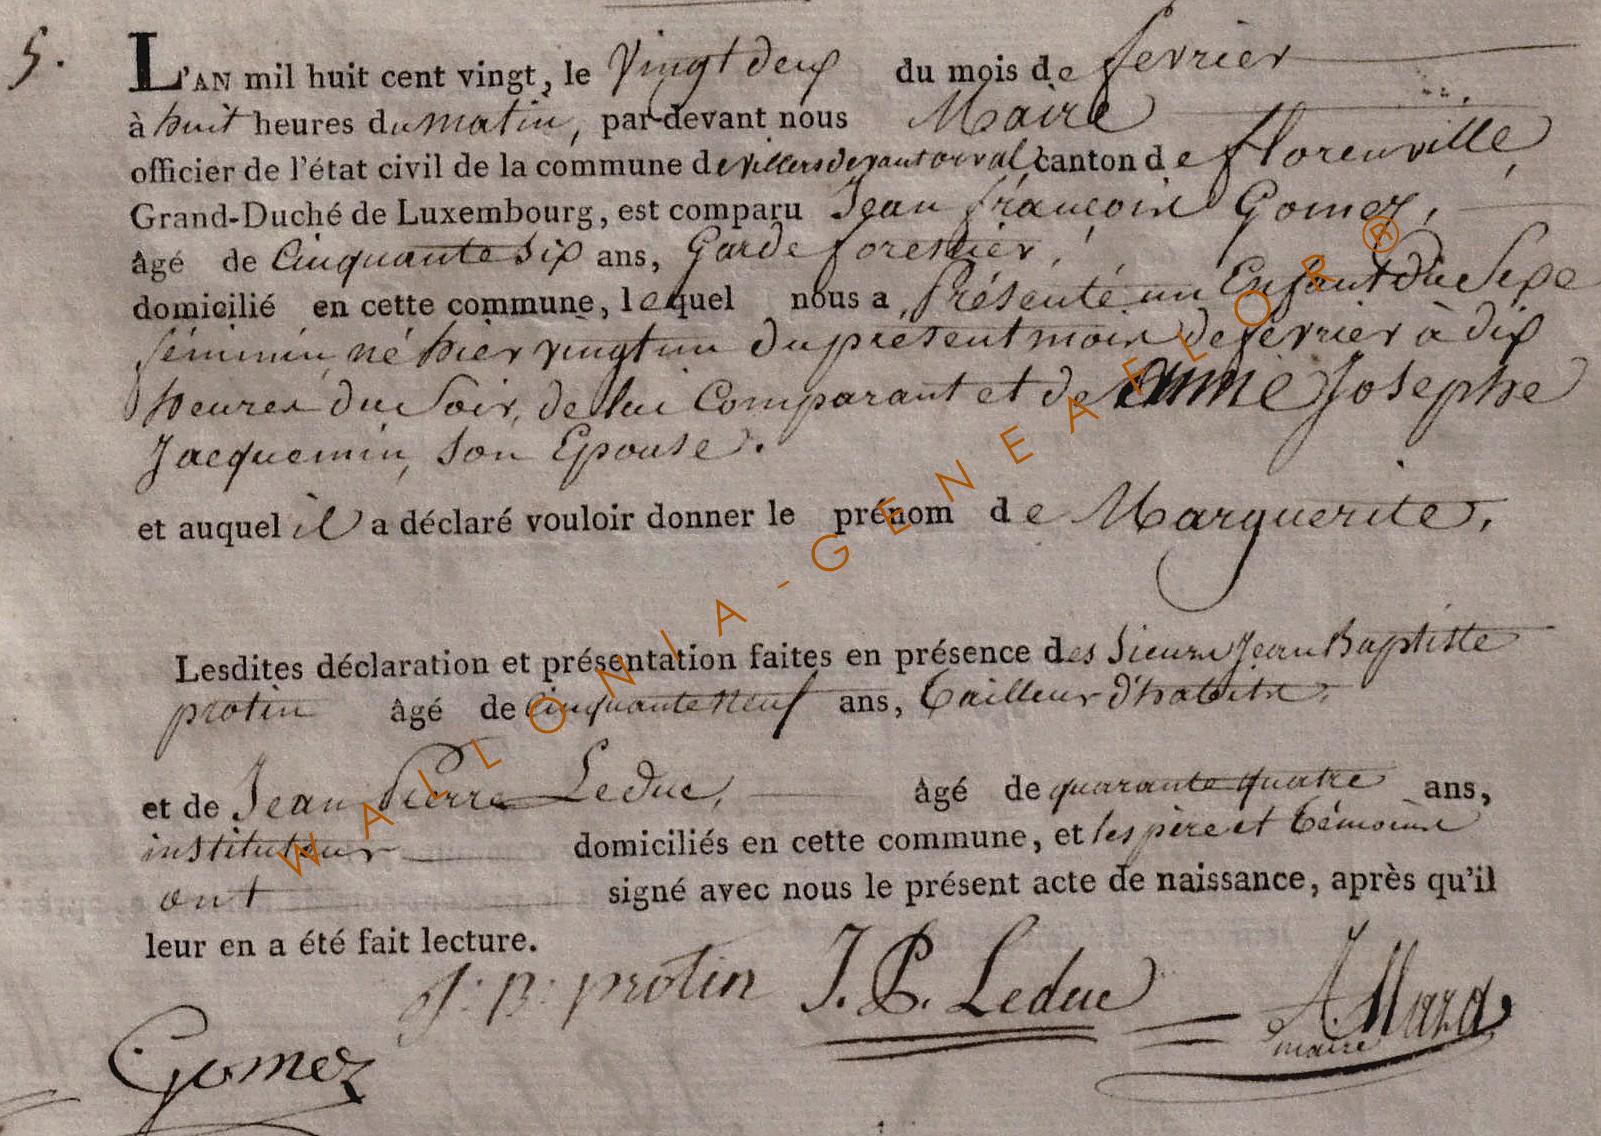 5.
L'AN mil huit cent vingt, le vingt deux du mois de fevrier
à huit heures du matin, par-devant nous Maire
officier de l'état civil de la commune de villersdevantorval canton de florenville,
Grand-Duché de Luxembourg, est comparu Jean françois Gomez,
âgé de Cinquante Six ans, Garde forestier,
domicilié en cette commune, lequel nous a Présenté un Enfant du Sexe
féminin, né hier vingt un du présent mois de février à dix
heures du Soir, de lui Comparant et de anne Josephe
Jacquemin, son Epouse.
et auquel il a déclaré vouloir donner le prénom de Marguerite,
Lesdites déclaration et présentation faites en présence des Sieurs Jean Baptiste
protin âgé de Cinquante Neuf ans, tailleur d'habits,
et de Jean Pierre Leduc, âgé de quarante quatre ans,
instituteur domiciliés en cette commune, et les père et témoins
ont signé avec nous le présent acte de naissance, après qu'il
leur en a été fait lecture.
J. B. protin J. P. Leduc
maire
Gomez
WALLONIA-GENEAFLOR®